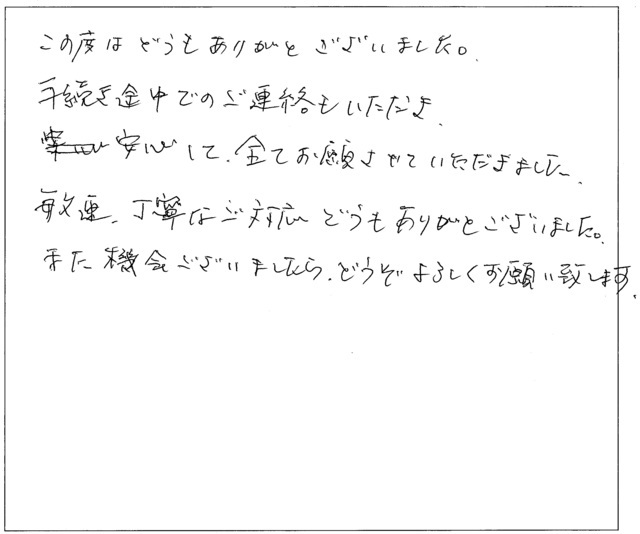 この度はどうもありがとうございました。
手続き途中でのご連絡もいただき、
安心して、全てお願いさせていただきました。
敏速、丁寧なご対応どうもありがとうございました。
また機会ございましたら、どうぞよろしくお願い致します。